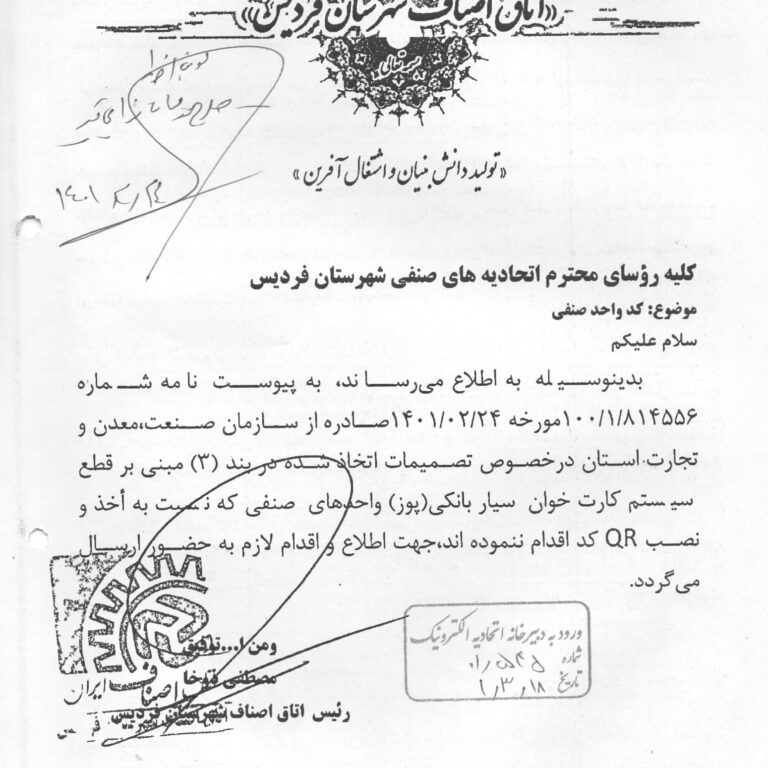 «اتاق اصناف شهرستان فردیس»
بسمه تعالی
«تولید دانش بنیان و اشتغال آفرین»
کلیه رؤسای محترم اتحادیه های صنفی شهرستان فردیس
موضوع: کد واحد صنفی
سلام علیکم
بدینوسیله به اطلاع می‌رساند، به پیوست نامه شماره
۱۰۰/۱/۸۱۴۵۵۶مورخه ۱۴۰۱/۰۲/۲۴صادره از سازمان صنعت،معدن و
تجارت استان درخصوص تصمیمات اتخاذ شده در بند (۳) مبنی بر قطع
سیستم کارت خوان سیار بانکی(پوز) واحدهای صنفی که نسبت به أخذ و
نصب QR کد اقدام ننموده اند،جهت اطلاع و اقدام لازم به حضور ارسال
می گردد.
ورود به دبیرخانه اتحادیه الکترونیک
شماره
تاریخ
ومن ا...توفیق
مصطفی فتوخا
رئیس اتاق اصناف شهرستان فردیس
اصناف ایران